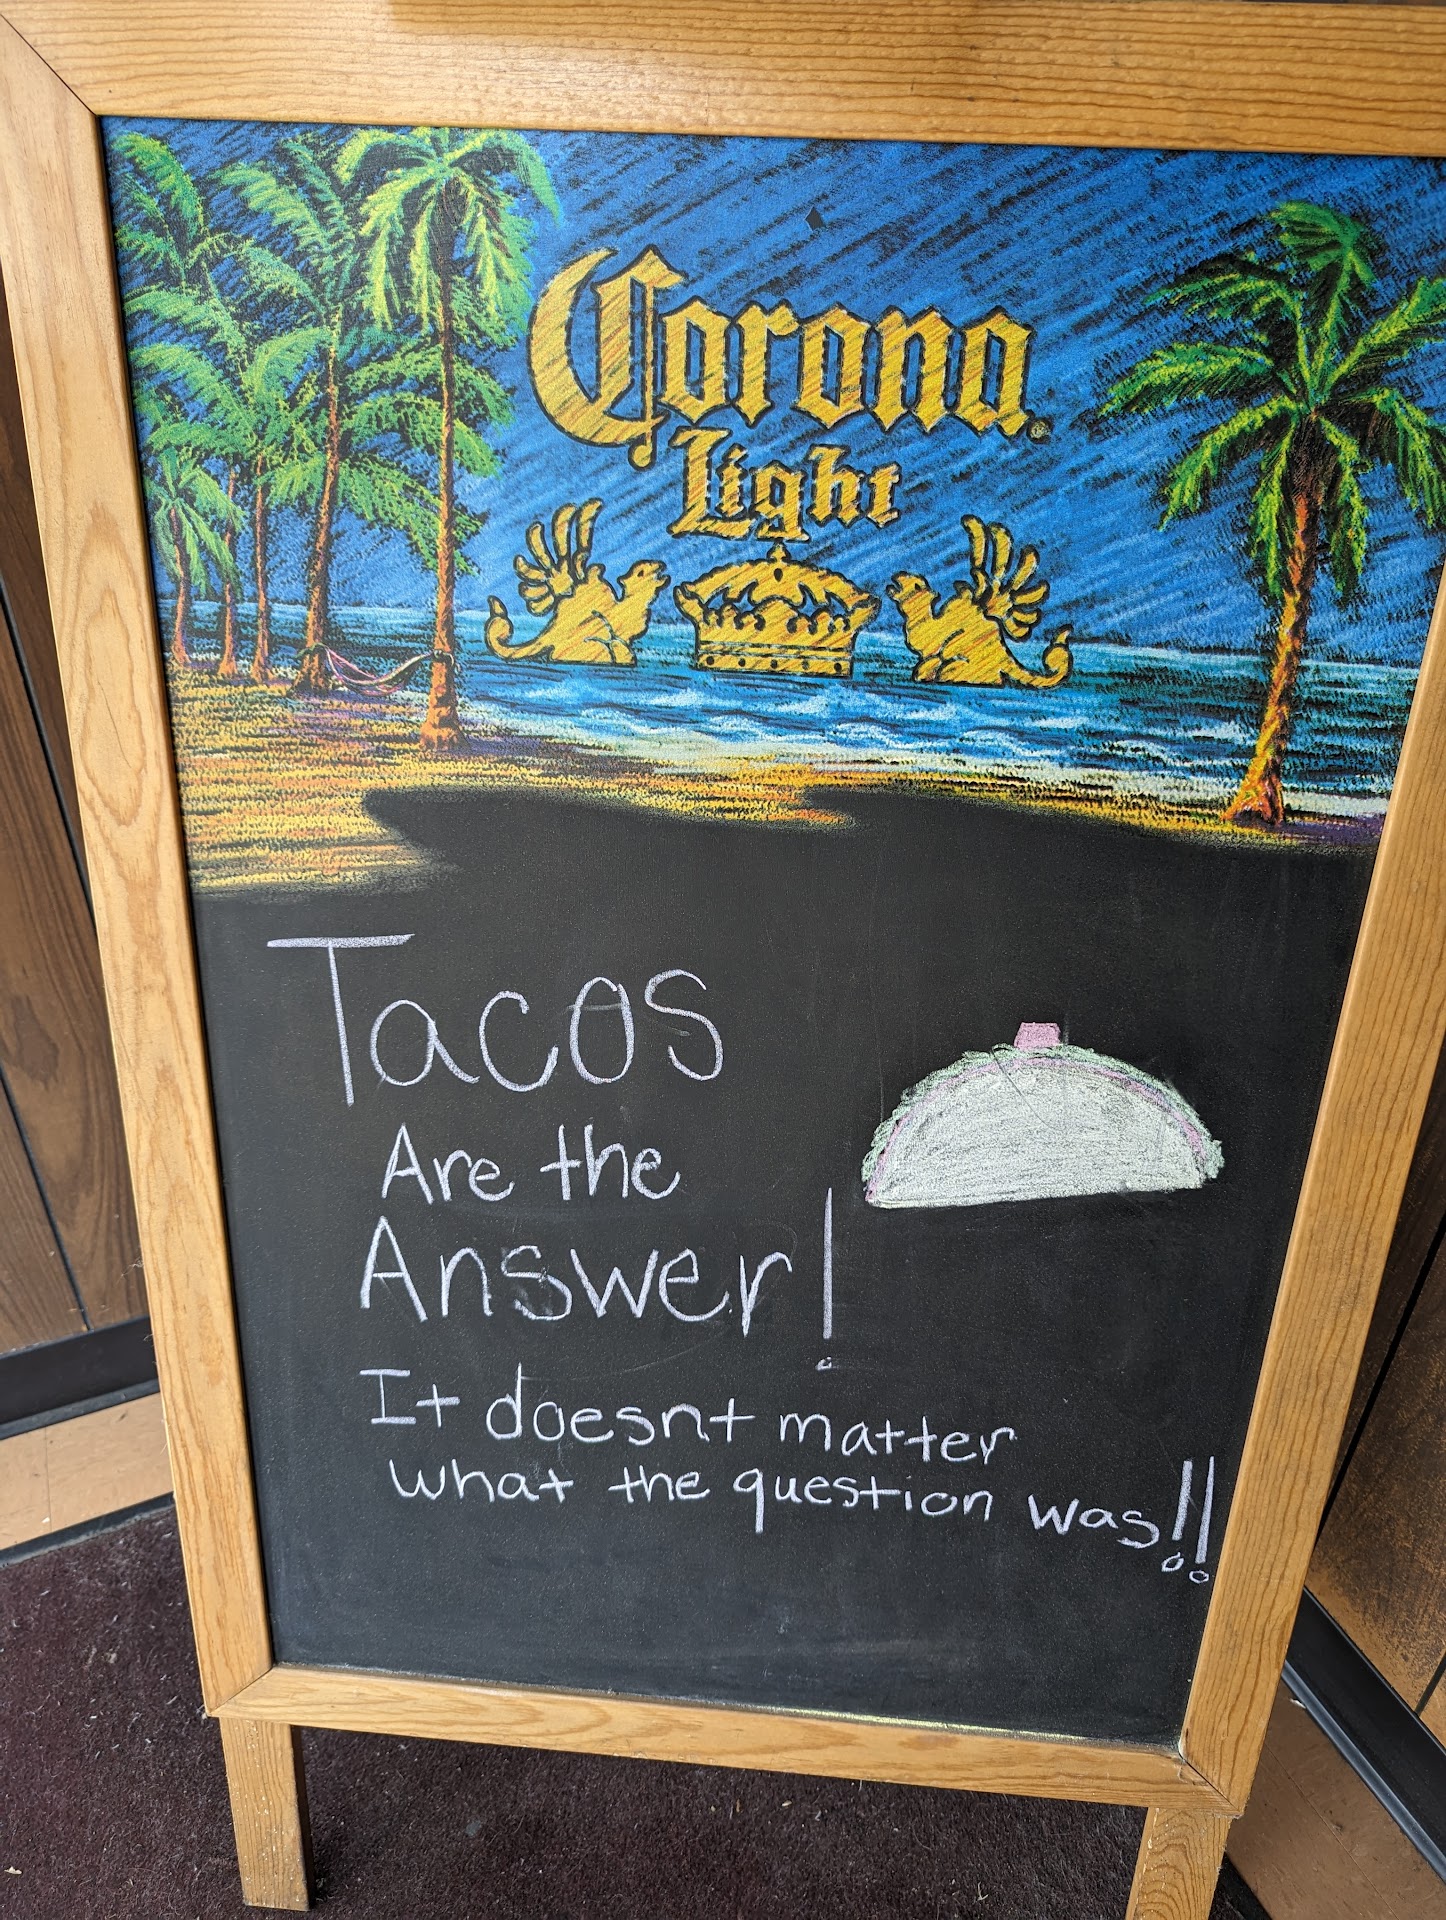 Corona
Light
Tacos
Are the
Answer!
It doesnt matter
what the question was!!